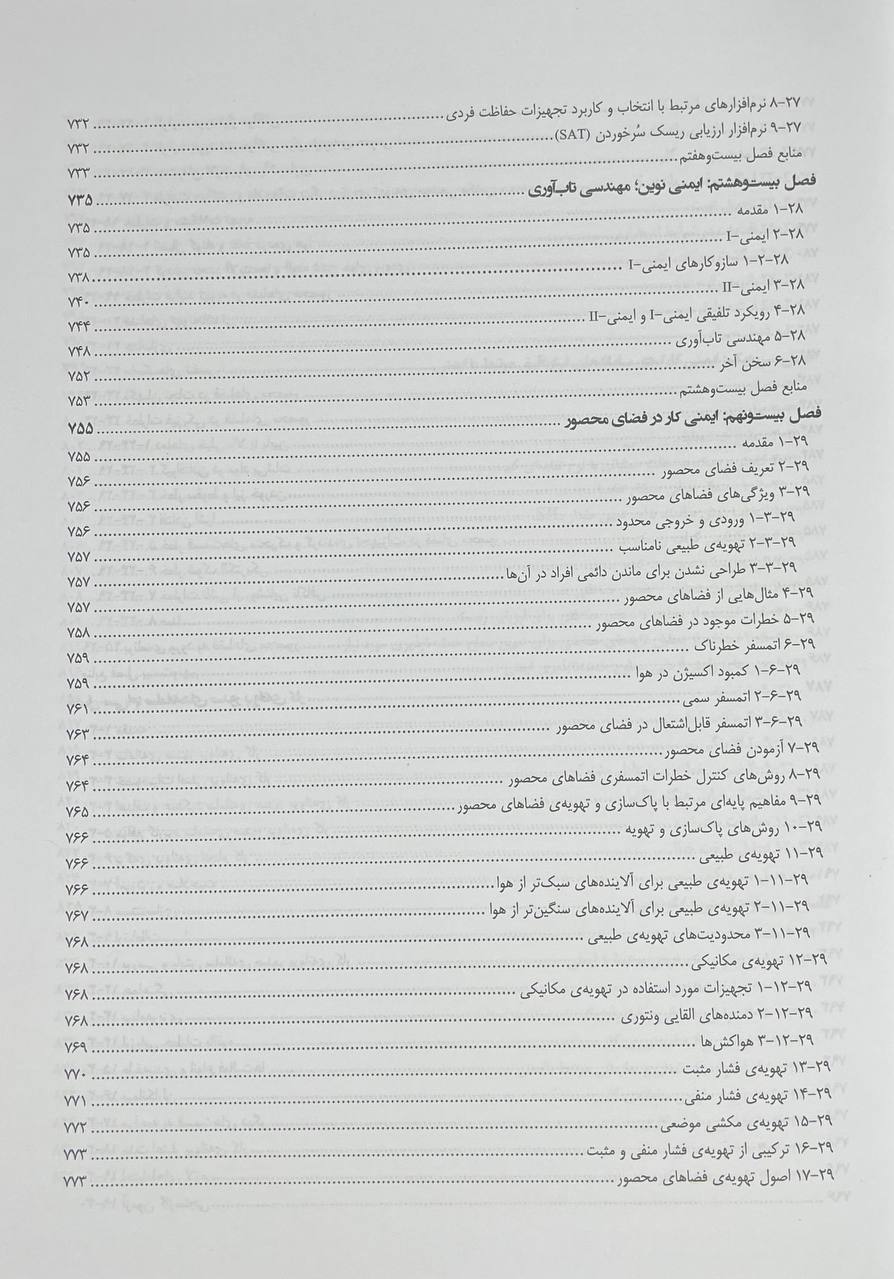 ۸-۲۷ نرم‌افزارهای مرتبط با انتخاب و کاربرد تجهیزات حفاظت فردی ... ۷۳۲
۹-۲۷ نرم‌افزار ارزیابی ریسک سُرخوردن (SAT) ... ۷۳۲
منابع فصل بیست‌وهفتم ... ۷۳۳
فصل بیست‌وهشتم: ایمنی نوین؛ مهندسی تاب‌آوری ... ۷۳۵
۱-۲۸ مقدمه ... ۷۳۵
۲-۲۸ ایمنی-I ... ۷۳۵
۱-۲-۲۸ سازوکارهای ایمنی-I ... ۷۳۸
۳-۲۸ ایمنی-II ... ۷۴۰
۴-۲۸ رویکرد تلفیقی ایمنی-I و ایمنی-II ... ۷۴۴
۵-۲۸ مهندسی تاب‌آوری ... ۷۴۸
۶-۲۸ سخن آخر ... ۷۵۲
منابع فصل بیست‌وهشتم ... ۷۵۳
فصل بیست‌ونهم: ایمنی کار در فضای محصور ... ۷۵۵
۱-۲۹ مقدمه ... ۷۵۵
۲-۲۹ تعریف فضای محصور ... ۷۵۶
۳-۲۹ ویژگی‌های فضاهای محصور ... ۷۵۶
۱-۳-۲۹ ورودی و خروجی محدود ... ۷۵۶
۲-۳-۲۹ تهویه‌ی طبیعی نامناسب ... ۷۵۷
۳-۳-۲۹ طراحی نشدن برای ماندن دائمی افراد در آن‌ها ... ۷۵۷
۴-۲۹ مثال‌هایی از فضاهای محصور ... ۷۵۷
۵-۲۹ خطرات موجود در فضاهای محصور ... ۷۵۸
۶-۲۹ اتمسفر خطرناک ... ۷۵۹
۱-۶-۲۹ کمبود اکسیژن در هوا ... ۷۵۹
۲-۶-۲۹ اتمسفر سمی ... ۷۶۱
۳-۶-۲۹ اتمسفر قابل‌اشتعال در فضای محصور ... ۷۶۳
۷-۲۹ آزمودن فضای محصور ... ۷۶۴
۸-۲۹ روش‌های کنترل خطرات اتمسفری فضاهای محصور ... ۷۶۴
۹-۲۹ مفاهیم پایه‌ای مرتبط با پاک‌سازی و تهویه‌ی فضاهای محصور ... ۷۶۵
۱۰-۲۹ روش‌های پاک‌سازی و تهویه ... ۷۶۶
۱۱-۲۹ تهویه‌ی طبیعی ... ۷۶۶
۱-۱۱-۲۹ تهویه‌ی طبیعی برای آلاینده‌های سبک‌تر از هوا ... ۷۶۶
۲-۱۱-۲۹ تهویه‌ی طبیعی برای آلاینده‌های سنگین‌تر از هوا ... ۷۶۷
۳-۱۱-۲۹ محدودیت‌های تهویه‌ی طبیعی ... ۷۶۸
۱۲-۲۹ تهویه‌ی مکانیکی ... ۷۶۸
۱-۱۲-۲۹ تجهیزات مورد استفاده در تهویه‌ی مکانیکی ... ۷۶۸
۲-۱۲-۲۹ دمنده‌های القایی ونتوری ... ۷۶۸
۳-۱۲-۲۹ هواکش‌ها ... ۷۶۹
۱۳-۲۹ تهویه‌ی فشار مثبت ... ۷۷۰
۱۴-۲۹ تهویه‌ی فشار منفی ... ۷۷۱
۱۵-۲۹ تهویه‌ی مکشی موضعی ... ۷۷۲
۱۶-۲۹ ترکیبی از تهویه‌ی فشار منفی و مثبت ... ۷۷۳
۱۷-۲۹ اصول تهویه‌ی فضاهای محصور ... ۷۷۳